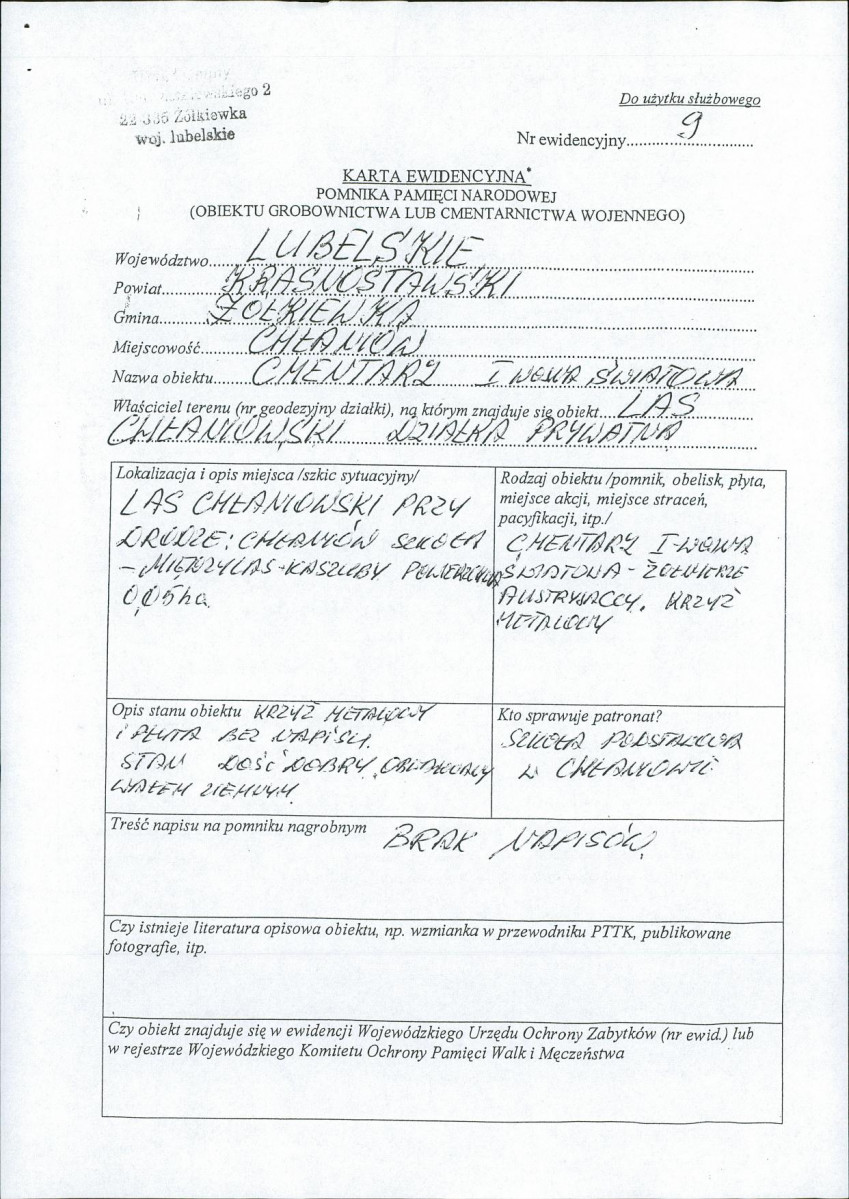 2
22-335 Żółkiewka
woj. lubelskie
Do użytku służbowego
Nr ewidencyjny 9
KARTA EWIDENCYJNA*
POMNIKA PAMIĘCI NARODOWEJ
(OBIEKTU GROBOWNICTWA LUB CMENTARNICTWA WOJENNEGO)
Województwo LUBELSKIE
Powiat KRASNOSTAWSKI
Gmina ŻÓŁKIEWKA
Miejscowość CHŁANIÓW
Nazwa obiektu CMENTARZ I WOJNA ŚWIATOWA
Właściciel terenu (nr geodezyjny działki), na którym znajduje się obiekt LAS
CHŁANIOWSKI DZIAŁKA PRYWATNA
Lokalizacja i opis miejsca /szkic sytuacyjny/
LAS CHŁANIOWSKI PRZY
DRODZE: CHŁANIÓW SZKOŁA
- MIĘDZYLAS-KASZUBY POWIERZCHNIA
0,05ha
Rodzaj obiektu /pomnik, obelisk, płyta,
miejsce akcji, miejsce straceń,
pacyfikacji, itp./
CMENTARZ I-WOJNA
ŚWIATOWA - ŻOŁNIERZE
AUSTRYJACCY. KRZYŻ
METALOWY
Opis stanu obiektu KRZYŻ METALOWY
I PŁYTA BEZ NAPISU.
STAN DOŚĆ DOBRY
WAŁEM ZIEMNYM.
Kto sprawuje patronat?
SZKOŁA PODSTAWOWA
W CHŁANIOWIE
Treść napisu na pomniku nagrobnym BRAK NAPISÓW
Czy istnieje literatura opisowa obiektu, np. wzmianka w przewodniku PTTK, publikowane
fotografie, itp.
Czy obiekt znajduje się w ewidencji Wojewódzkiego Urzędu Ochrony Zabytków (nr ewid.) lub
w rejestrze Wojewódzkiego Komitetu Ochrony Pamięci Walk i Męczeństwa